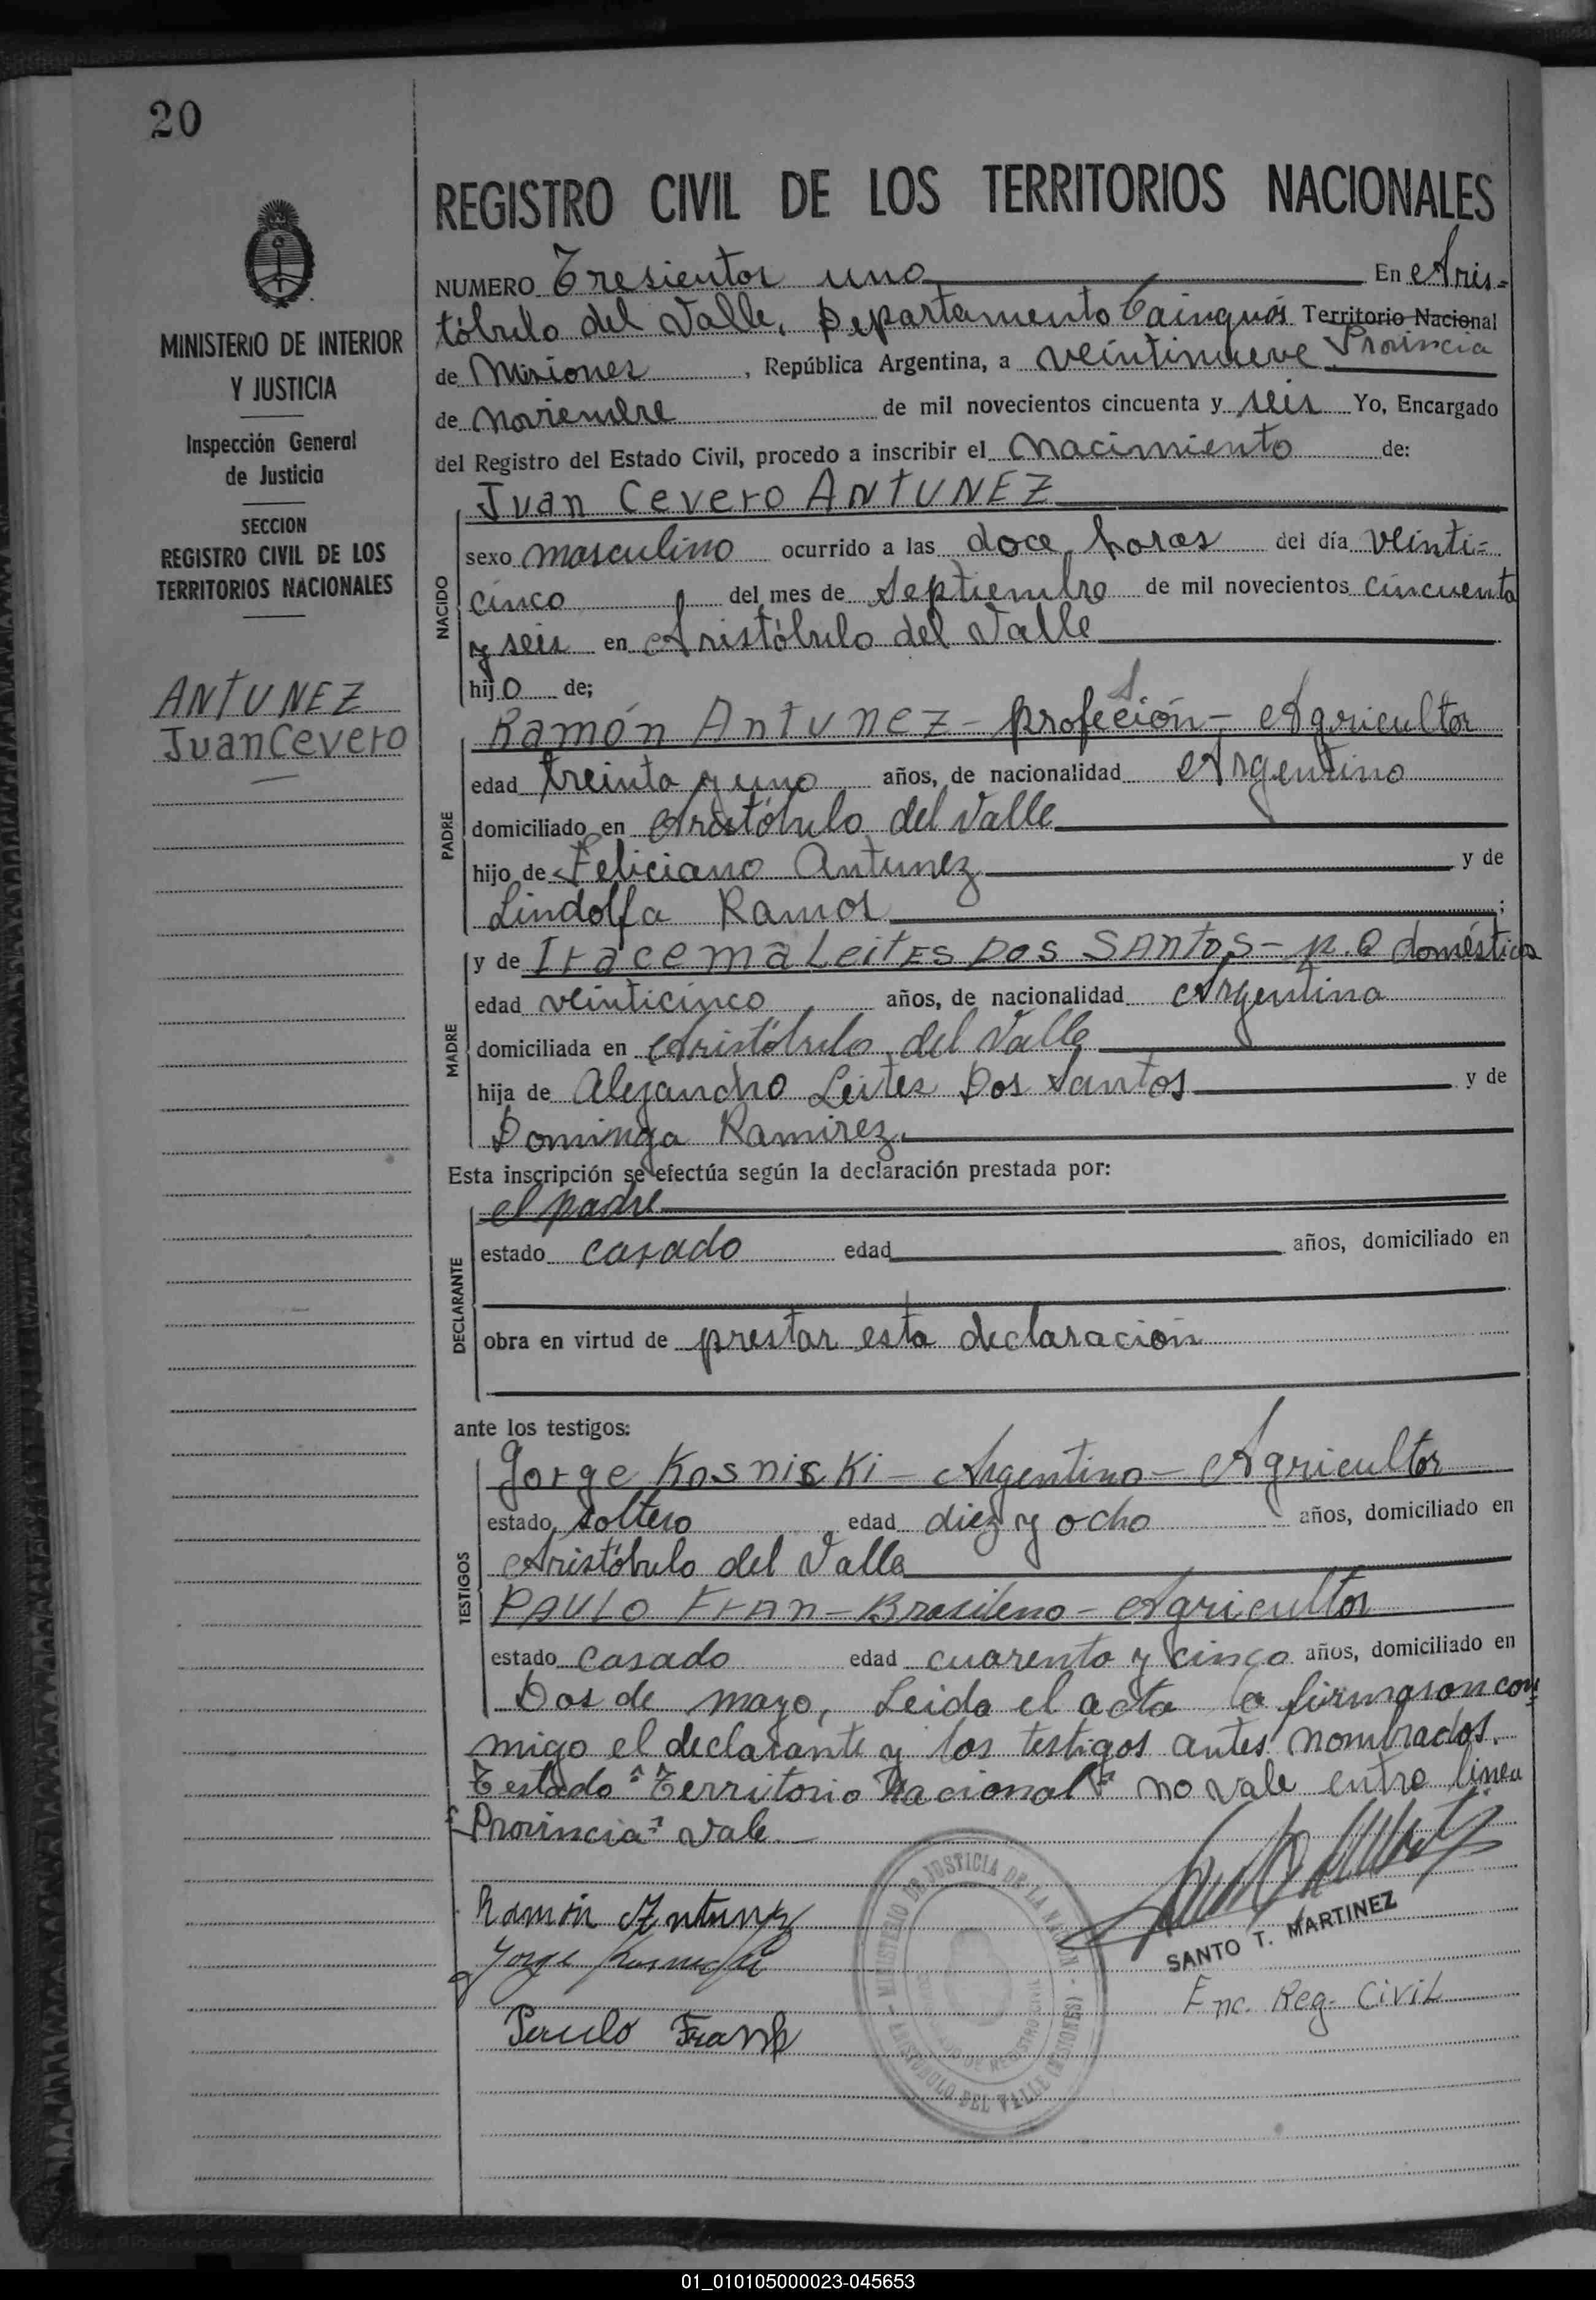 20
REGISTRO CIVIL DE LOS TERRITORIOS NACIONALES
MINISTERIO DE INTERIOR
Y JUSTICIA
Inspección General
de Justicia
SECCION
REGISTRO CIVIL DE LOS
TERRITORIOS NACIONALES
ANTUNEZ
Juan Cevero
NUMERO Tresientos uno En Aris=
tóbulo del Valle, Departamento Cainguás Territorio Nacional
Provincia
de Misiones, República Argentina, a veintinueve
de noviembre de mil novecientos cincuenta y seis Yo, Encargado
del Registro del Estado Civil, procedo a inscribir el nacimiento de:
NACIDO
Juan Cevero ANTUNEZ
sexo masculino ocurrido a las doce horas del día veinti=
cinco del mes de septiembre de mil novecientos cincuenta
y seis en Aristóbulo del Valle
hijo de;
PADRE
s
Ramón Antunez - profeción - Agricultor
edad treinta y uno años, de nacionalidad Argentino
domiciliado en Aristóbulo del Valle
hijo de Feliciano Antunez y de
Lindolfa Ramos ;
MADRE
y de Iracema Leites Dos Santos - p. Q doméstica
edad veinticinco años, de nacionalidad Argentina
domiciliada en Aristóbulo del Valle
hija de Alejandro Leites Dos Santos y de
Dominga Ramirez.
Esta inscripción se efectúa según la declaración prestada por:
DECLARANTE
el padre
estado casado edad años, domiciliado en
obra en virtud de prestar esta declaración
ante los testigos:
TESTIGOS
Jorge Kosniski - Argentino - Agricultor
estado soltero edad diez y ocho años, domiciliado en
Aristóbulo del Valle
PAULO Fran - Brasileno - Agricultor
estado casado edad cuarenta y cinco años, domiciliado en
Dos de mayo, Leida el acta la firmaron con=
migo el declarante y los testigos antes nombrados.
Testado "Territorio Nacional" no vale entre linea
"Provincia" vale
Ramón Antunez
Jorge
Paulo Frank
MINISTERIO DE JUSTICIA DE LA NACION
ARISTOBULO DEL VALLE (MISIONES)
SANTO T. MARTINEZ
Enc. Reg. Civil
01_010105000023-045653